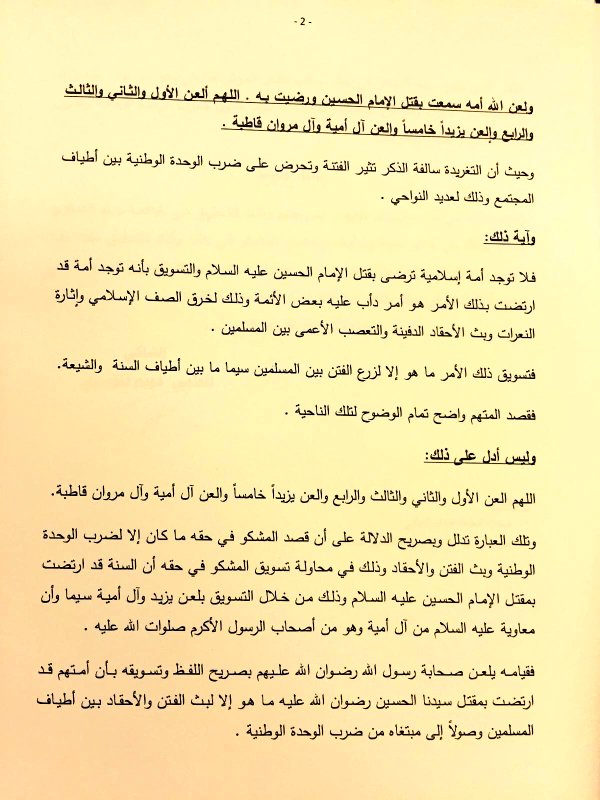 - 2 -
ولعن الله أمه سمعت بقتل الإمام الحسين ورضيت به . اللهم ألعن الأول والثاني والثالث
والرابع وإلعن يزيداً خامساً والعن آل أمية وآل مروان قاطبة .
وحيث أن التغريدة سالفة الذكر تثير الفتنة وتحرض على ضرب الوحدة الوطنية بين أطياف
المجتمع وذلك لعديد النواحي .
وآية ذلك:
فلا توجد أمة إسلامية ترضى بقتل الإمام الحسين عليه السلام والتسويق بأنه توجد أمة قد
ارتضت بذلك الأمر هو أمر دأب عليه بعض الأئمة وذلك لخرق الصف الإسلامي وإثارة
النعرات وبث الأحقاد الدفينة والتعصب الأعمى بين المسلمين .
فتسويق ذلك الأمر ما هو إلا لزرع الفتن بين المسلمين سيما ما بين أطياف السنة والشيعة.
فقصد المتهم واضح تمام الوضوح لتلك الناحية .
وليس أدل على ذلك:
اللهم العن الأول والثاني والثالث والرابع والعن يزيداً خامساً والعن آل أمية وآل مروان قاطبة.
وتلك العبارة تدلل وبصريح الدلالة على أن قصد المشكو في حقه ما كان إلا لضرب الوحدة
الوطنية وبث الفتن والأحقاد وذلك في محاولة تسويق المشكو في حقه أن السنة قد ارتضت
بمقتل الإمام الحسين عليه السلام وذلك من خلال التسويق بلعن يزيد وآل أمية سيما وأن
معاوية عليه السلام من آل أمية وهو من أصحاب الرسول الأكرم صلوات الله عليه .
فقيامه بلعن صحابة رسول الله رضوان الله عليهم بصريح اللفظ وتسويقه بأن أمتهم قد
ارتضت بمقتل سيدنا الحسين رضوان الله عليه ما هو إلا لبث الفتن والأحقاد بين أطياف
المسلمين وصولاً إلى مبتغاه من ضرب الوحدة الوطنية .